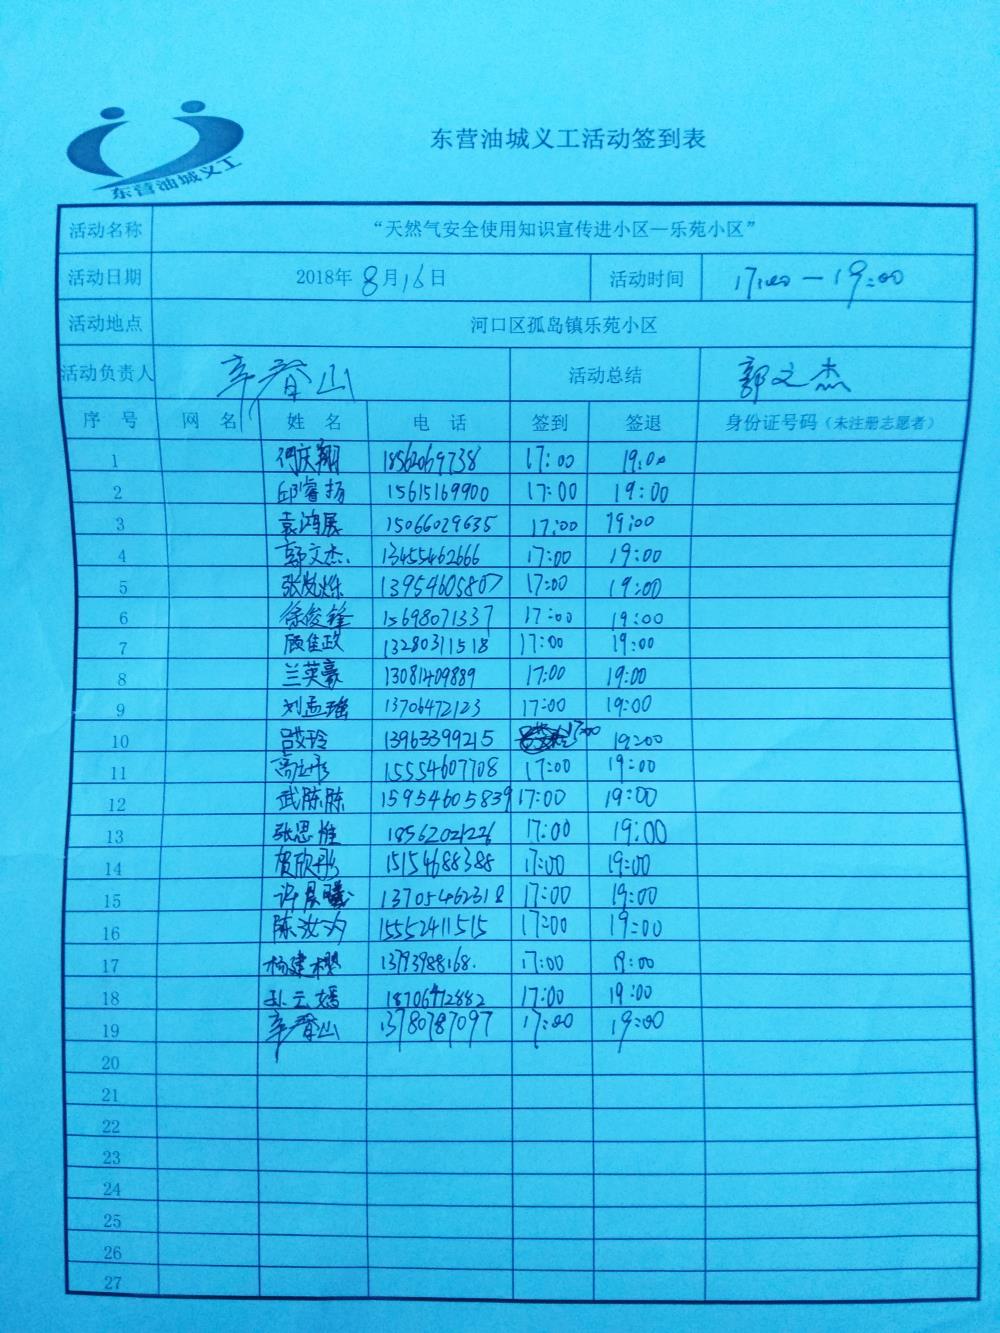 东营油城义工
东营油城义工活动签到表
活动名称 “天然气安全使用知识宣传进小区—乐苑小区”
活动日期 2018年8月16日 活动时间 17:00—19:00
活动地点 河口区孤岛镇乐苑小区
活动负责人 辛春山 活动总结 郭文杰
序号 网名 姓名 电话 签到 签退 身份证号码（未注册志愿者）
1 庆翔 18562069738 17:00 19:00
2 邱睿扬 15615169900 17:00 19:00
3 袁鸿展 15066029635 17:00 19:00
4 郭文杰 13455462666 17:00 19:00
5 张烁 13954605807 17:00 19:00
6 徐俊锋 15698071337 17:00 19:00
7 顾佳政 13280311518 17:00 19:00
8 兰英豪 13081409889 17:00 19:00
9 刘孟瑶 13706472123 17:00 19:00
10 吕玲 13963399215 17:00 19:00
11 高 15554607708 17:00 19:00
12 武陈陈 15954605839 17:00 19:00
13 张思惟 18562021226 17:00 19:00
14 贺欣彤 15154688388 17:00 19:00
15 许晨曦 13705462318 17:00 19:00
16 陈汝 15552411515 17:00 19:00
17 杨建樱 13793988168. 17:00 19:00
18 孙云嫣 18706472882 17:00 19:00
19 辛春山 13780787097 17:00 19:00
20
21
22
23
24
25
26
27